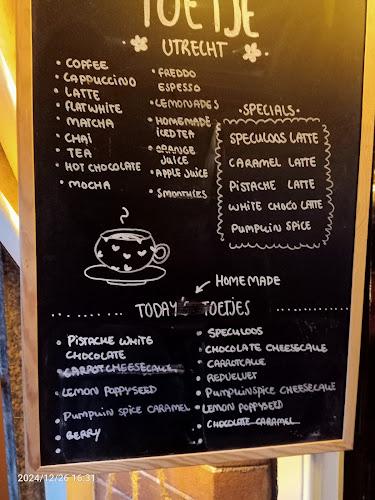 TOETJE
UTRECHT
• COFFEE
• CAPPUCCINO
• LATTE
• FLATWHITE
• MATCHA
• CHAI
• TEA
• HOT CHOCOLATE
• MOCHA
• FREDDO
ESPESSO
• LEMONADES
• HOMEMADE
ICED TEA
• ORANGE
JUICE
• APPLE JUICE
• SMOOTHIES
• SPECIALS •
SPECULOOS LATTE
CARAMEL LATTE
PISTACHE LATTE
WHITE CHOCO LATTE
PUMPUIN SPICE
HOMEMADE
TODAY'S TOETJES
• PISTACHE WHITE
CHOCOLATE
• CARROTCHEESECAKE
• LEMON POPPYSEED
• PUMPUIN SPICE CARAMEL
• BERRY
• SPECULOOS
• CHOCOLATE CHEESECAKE
• CARROTCAKE
• REDVELVET
• PUMPUINSPICE CHEESECAKE
• LEMON POPPYSEED
• CHOCOLATE CARAMEL
2024/12/26 16:31